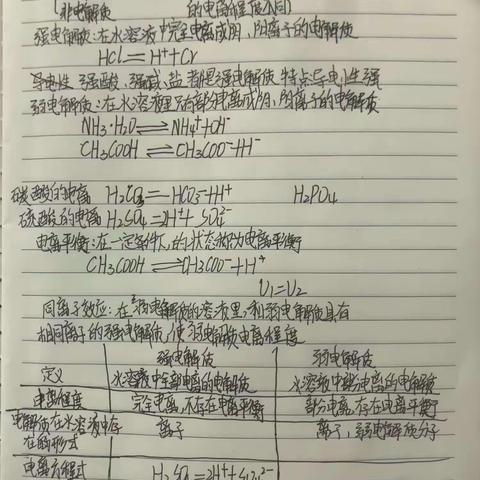 非电解质 的电离程度不同
强电解质:在水溶液中完全电离成阴,阳离子的电解质
HCl═H⁺+Cl⁻
导电性 强酸、强碱、盐 都是强电解质 特点:导电性强
弱电解质:在水溶液里只有部分电离成阴,阳离子的电解质
NH₃·H₂O⇌NH₄⁺+OH⁻
CH₃COOH⇌CH₃COO⁻+H⁺
碳酸的电离 H₂CO₃⇌HCO₃⁻+H⁺ H₂PO₄
硫酸的电离 H₂SO₄═2H⁺+SO₄²⁻
电离平衡:在一定条件 的状态称为电离平衡
CH₃COOH⇌CH₃COO⁻+H⁺
V₁=V₂
同离子效应:在弱电解质的溶液里,和弱电解质具有
相同离子的强电解质,使弱电解质电离程度
强电解质 弱电解质
定义 水溶液中全部电离的电解质 水溶液中部分电离的电解质
电离程度 完全电离,不存在电离平衡 部分电离,存在电离平衡
电解质在水溶液中存在的形式 离子 离子,弱电解质分子
电离方程式 H₂SO₄═2H⁺+SO₄²⁻